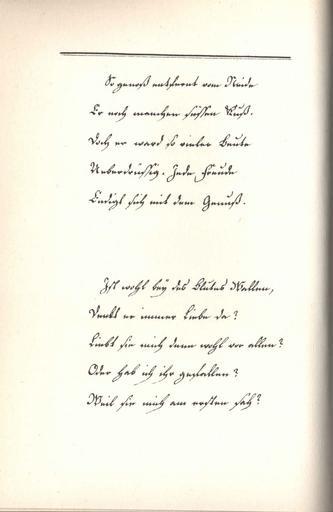 So genoß entfernt vom Neide
Er noch manchen süssen Kuß.
Doch er ward so vieler Beute
Ueberdrüssig. Jede Freude
Endigt sich mit dem Genuß.
Ist wohl bey des Blutes Wallen,
Denkt er immer Liebe da?
Liebt sie mich denn wohl vor allen?
Oder hab ich ihr gefallen?
Weil sie mich am ersten sah?